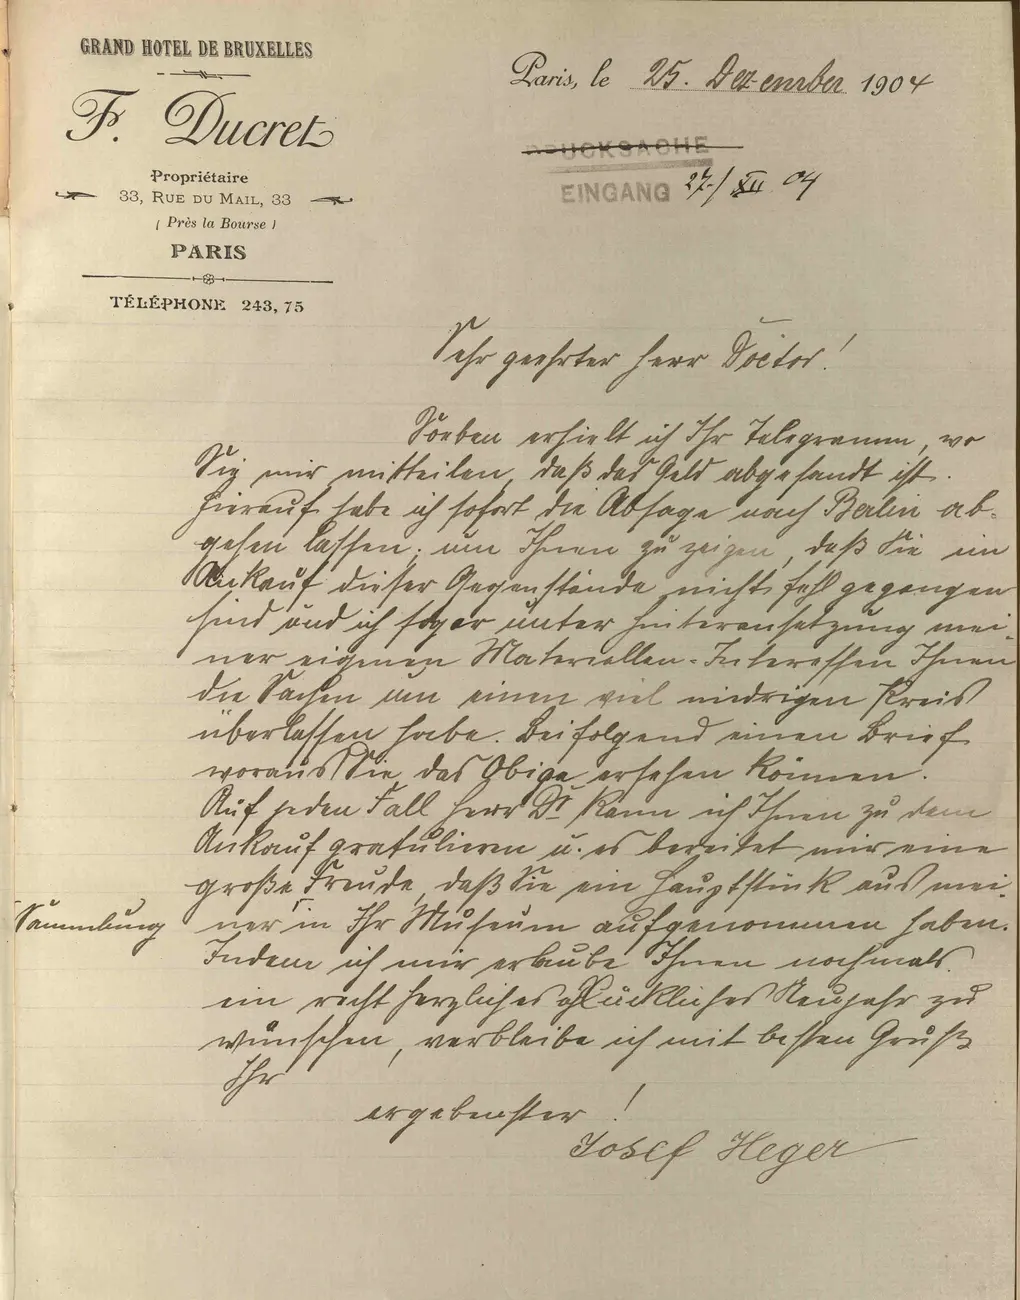 GRAND HOTEL DE BRUXELLES
F. Ducret
Propriétaire
33, RUE DU MAIL, 33
(Près la Bourse)
PARIS
TÉLÉPHONE 243,75
Paris, le 25. Dezember 1904
DRUCKSACHE
EINGANG 27./XII 04
Sehr geehrter Herr Doctor!
Soeben erhielt ich Ihr Telegramm, wo
Sie mir mitteilen, daß das Geld abgesandt ist.
Hierauf habe ich sofort die Absage nach Berlin ab-
gehen lassen; um Ihnen zu zeigen, daß Sie im
Ankauf dieser Gegenstände nicht fehl gegangen
sind und ich sogar unter Hinteransetzung mei-
ner eigenen Materiellen-Interessen Ihnen
die Sachen um einen viel niedrigen Preis
überlassen habe. Beifolgend einen Brief
woraus Sie das Obige ersehen können.
Auf jeden Fall Herr Dr kann ich Ihnen zu dem
Ankauf gratulieren u. es bereitet mir eine
große Freude, daß Sie ein Hauptstück aus mei-
Sammlung
ner in Ihr Museum aufgenommen haben.
Indem ich mir erlaube Ihnen nochmals
ein recht herzliches glückliches Neujahr zu
wünschen, verbleibe ich mit besten Gruß
Ihr
ergebenster!
Josef Heger